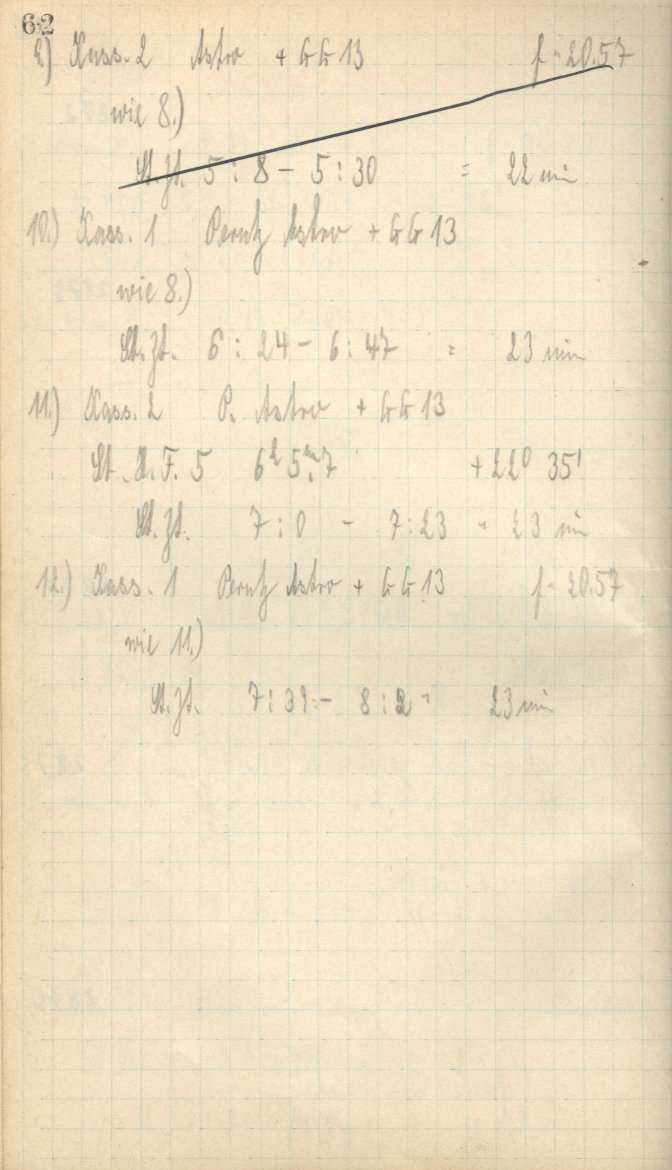 62
9.) Kass. 2 Astro + GG 13 f = 20.57
wie 8.)
St.Zt. 5 : 8 - 5 : 30 = 22 min
10.) Kass. 1 Perutz Astro + GG 13
wie 8.)
St.Zt. 6 : 24 - 6 : 47 = 23 min
11.) Kass. 2 P. Astro + GG 13
St. K. F. 5 6h 5m.7 +22° 35'
St.Zt. 7 : 0 - 7 : 23 = 23 min
12.) Kass. 1 Perutz Astro + GG 13 f = 20.57
wie 11.)
St.Zt. 7 : 39 - 8 : 2 = 23 min